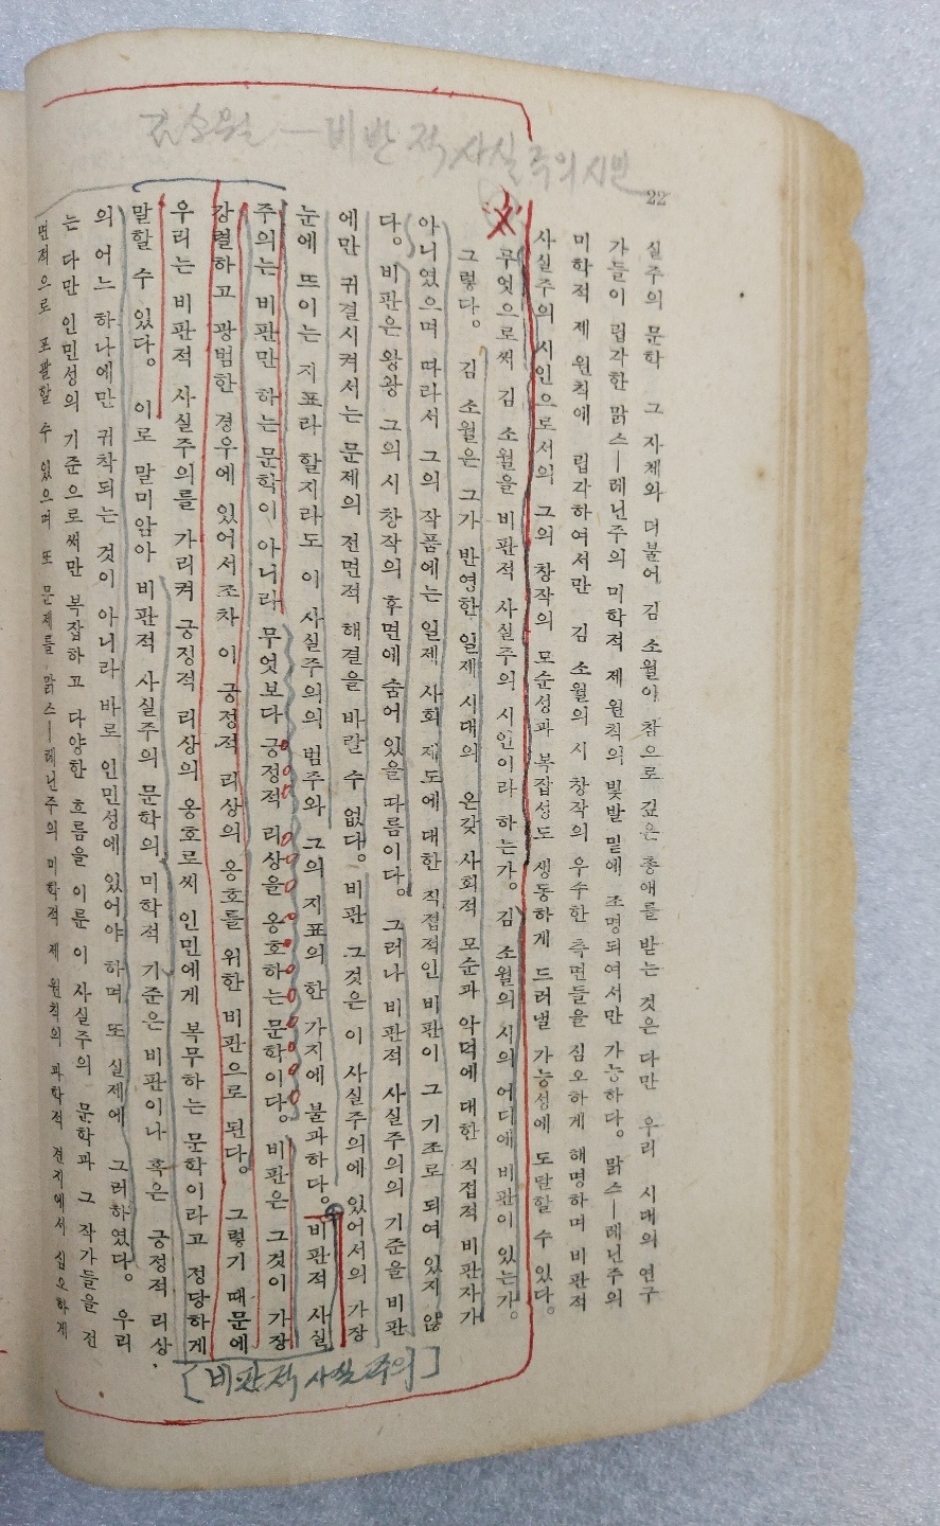 김소월 — 비판적 사실주의 시인
22
실주의 문학 그 자체와 더불어 김 소월이 참으로 깊은 총애를 받는 것은 다만 우리 시대의 연구
가들이 립각한 맑스—레닌주의 미학적 제 원칙의 빛발 밑에 조명되여서만 가능하다. 맑스—레닌주의
미학적 제 원칙에 립각하여서만 김 소월의 시 창작의 우수한 측면들을 심오하게 해명하며 비판적
사실주의 시인으로서의 그의 창작의 모순성과 복잡성도 생동하게 드러낼 가능성에 도달할 수 있다.
무엇으로써 김 소월을 비판적 사실주의 시인이라 하는가. 김 소월의 시의 어디에 비판이 있는가.
그렇다. 김 소월은 그가 반영한 일제 시대의 온갖 사회적 모순과 악덕에 대한 직접적 비판자가
아니였으며 따라서 그의 작품에는 일제 사회 제도에 대한 직접적인 비판이 그 기조로 되여 있지 않
다. 비판은 왕왕 그의 시 창작의 후면에 숨어 있을 따름이다. 그러나 비판적 사실주의의 기준을 비판
에만 귀결시켜서는 문제의 전면적 해결을 바랄 수 없다. 비판 그것은 이 사실주의에 있어서의 가장
눈에 뜨이는 지표라 할지라도 이 사실주의의 범주와 그의 지표의 한 가지에 불과하다. 비판적 사실
주의는 비판만 하는 문학이 아니라 무엇보다 긍정적 리상을 옹호하는 문학이다. 비판은 그것이 가장
강렬하고 광범한 경우에 있어서조차 이 긍정적 리상의 옹호를 위한 비판으로 된다. 그렇기 때문에
우리는 비판적 사실주의를 가리켜 긍정적 리상의 옹호로써 인민에게 복무하는 문학이라고 정당하게
말할 수 있다. 이로 말미암아 비판적 사실주의 문학의 미학적 기준은 비판이나 혹은 긍정적 리상
의 어느 하나에만 귀착되는 것이 아니라 바로 인민성에 있어야 하며 또 실제에 그러하였다. 우리
는 다만 인민성의 기준으로써만 복잡하고 다양한 흐름을 이룬 이 사실주의 문학과 그 작가들을 전
면적으로 포괄할 수 있으며 또 문제를 맑스—레닌주의 미학적 제 원칙의 과학적 견지에서 심오하게
[비판적 사실주의]